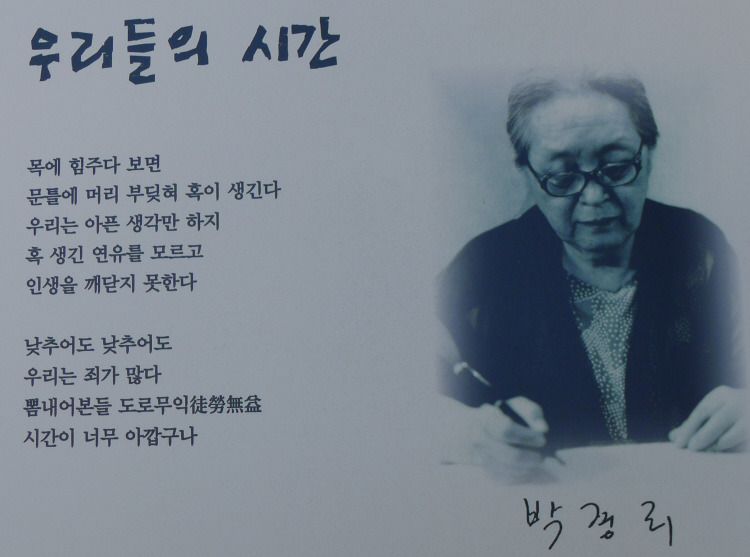 우리들의 시간
목에 힘주다 보면
문틀에 머리 부딪혀 혹이 생긴다
우리는 아픈 생각만 하지
혹 생긴 연유를 모르고
인생을 깨닫지 못한다
낮추어도 낮추어도
우리는 죄가 많다
뽐내어본들 도로무익徒勞無益
시간이 너무 아깝구나
박경리